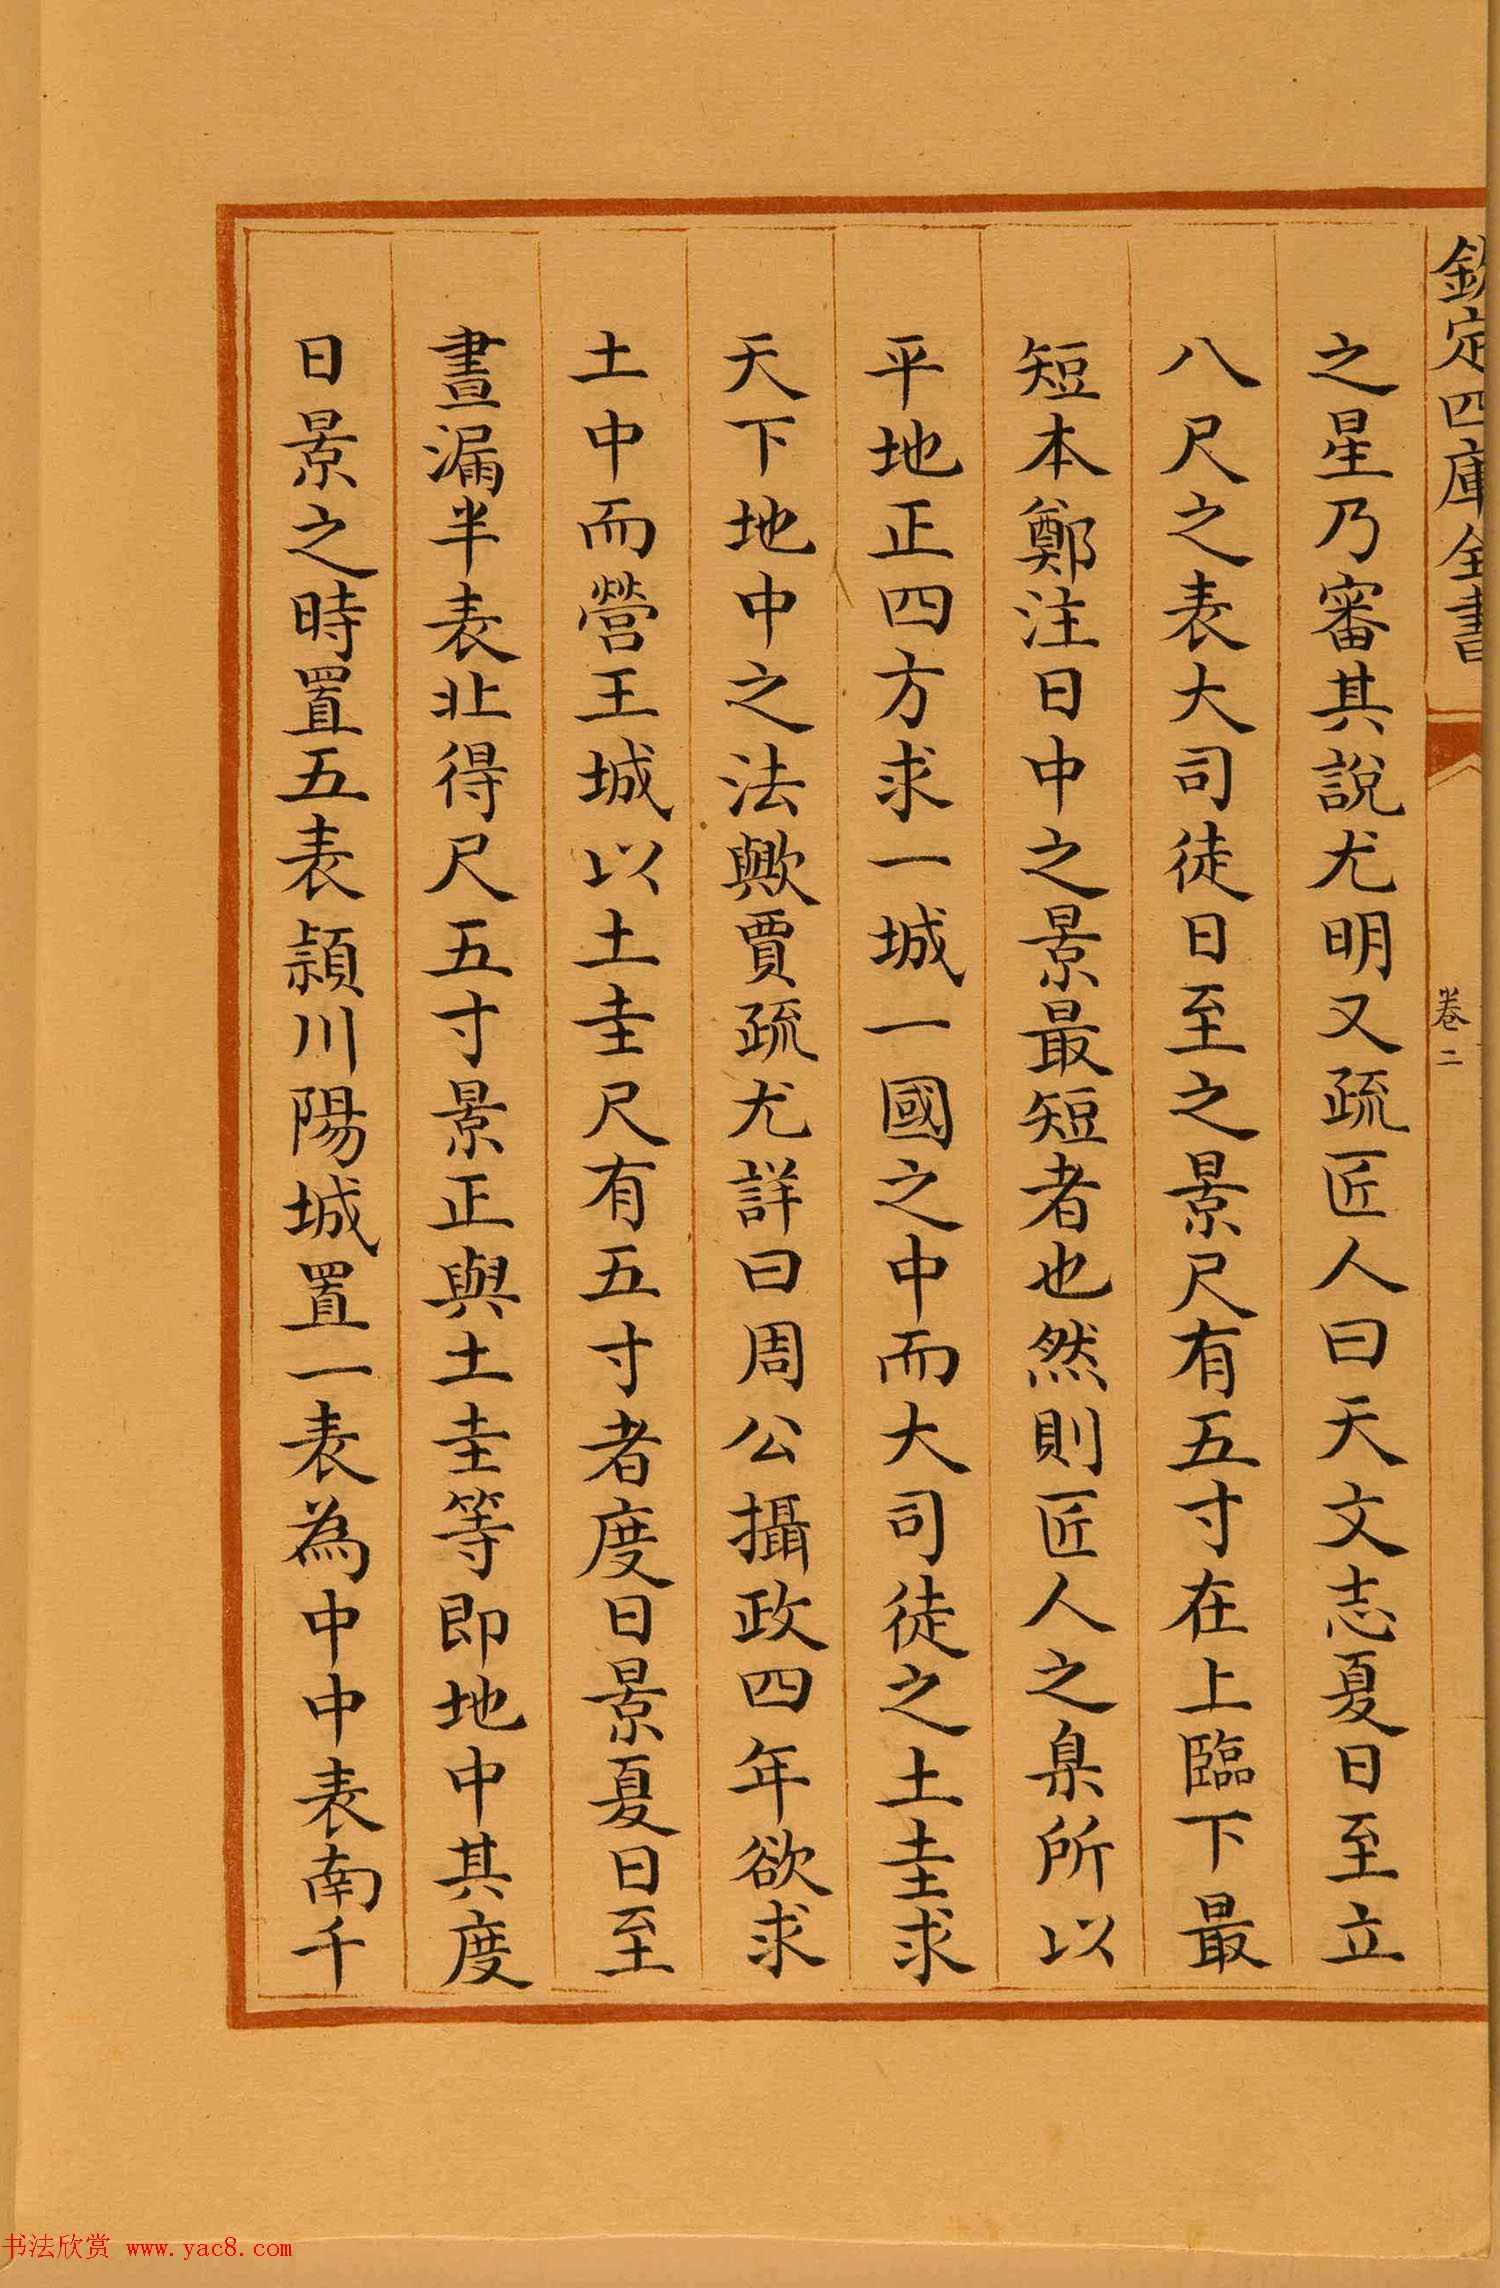 欽定四庫全書
卷二
之星乃審其說尤明又疏匠人曰天文志夏日至立
八尺之表大司徒日至之景尺有五寸在上臨下最
短本鄭注日中之景最短者也然則匠人之臬所以
平地正四方求一城一國之中而大司徒之土圭求
天下地中之法歟賈疏尤詳曰周公攝政四年欲求
土中而營王城以土圭尺有五寸者度日景夏日至
晝漏半表北得尺五寸景正與土圭等即地中其度
日景之時置五表潁川陽城置一表為中中表南千
书法欣赏 www.yac8.com